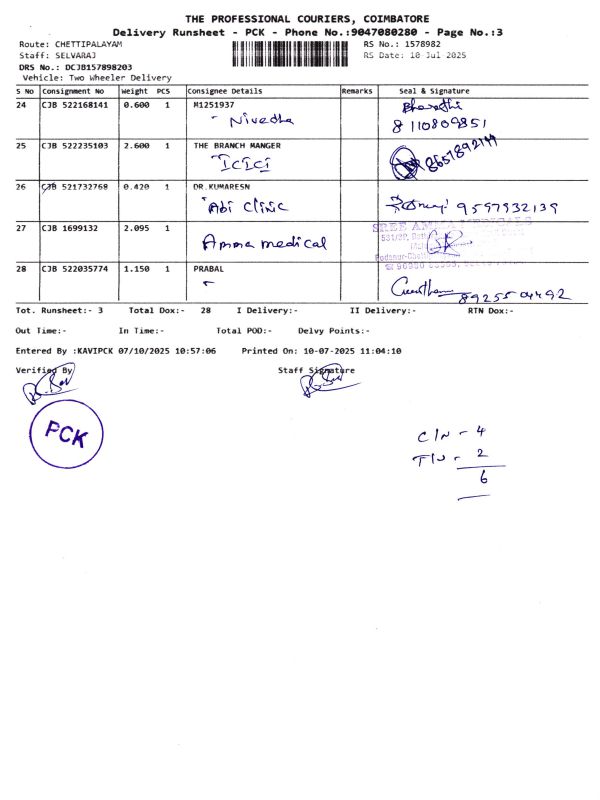 THE PROFESSIONAL COURIERS, COIMBATORE
Delivery Runsheet - PCK - Phone No.:9047080280 - Page No.:3
Route: CHETTIPALAYAM RS No.: 1578982
Staff: SELVARAJ RS Date: 10-Jul-2025
DRS No.: DCJB157898203
Vehicle: Two Wheeler Delivery
S No Consignment No Weight PCS Consignee Details Remarks Seal & Signature
24 CJB 522168141 0.600 1 M1251937 Bharathi
Nivedha 8110809851
25 CJB 522235103 2.600 1 THE BRANCH MANGER
ICICI
26 CJB 521732768 0.420 1 DR.KUMARESN
Abi Clinic 9597932139
27 CJB 1699132 2.095 1
Amma medical
28 CJB 522035774 1.150 1 PRABAL
Tot. Runsheet:- 3 Total Dox:- 28 I Delivery:- II Delivery:- RTN Dox:-
Out Time:- In Time:- Total POD:- Delvy Points:-
Entered By :KAVIPCK 07/10/2025 10:57:06 Printed On: 10-07-2025 11:04:10
Verified By Staff Signature
PCK
C/N - 4
T/N - 2
6